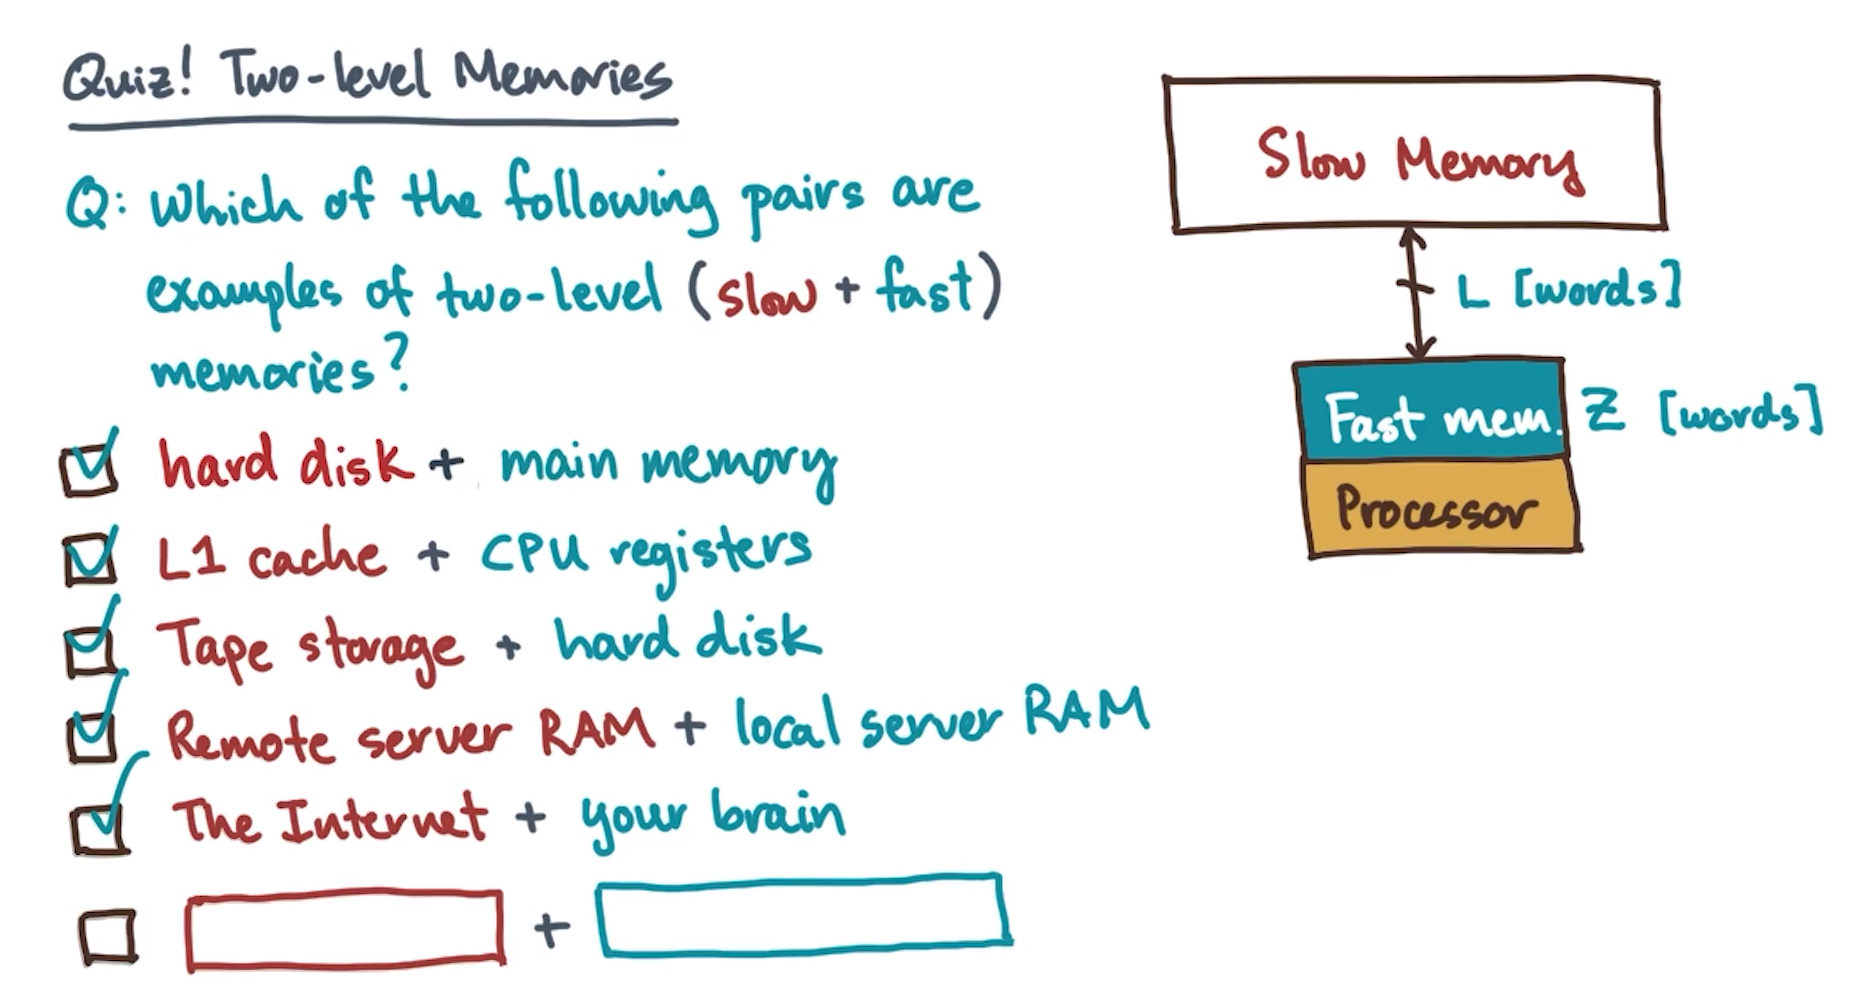 Quiz! Two-level Memories
Q: Which of the following pairs are
examples of two-level (slow + fast)
memories?
hard disk + main memory
L1 cache + CPU registers
Tape storage + hard disk
Remote server RAM + local server RAM
The Internet + your brain
+
Slow Memory
L [words]
Fast mem. Z [words]
Processor